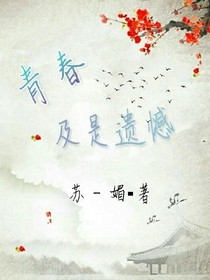 青春
及是遗憾
苏一媚■著